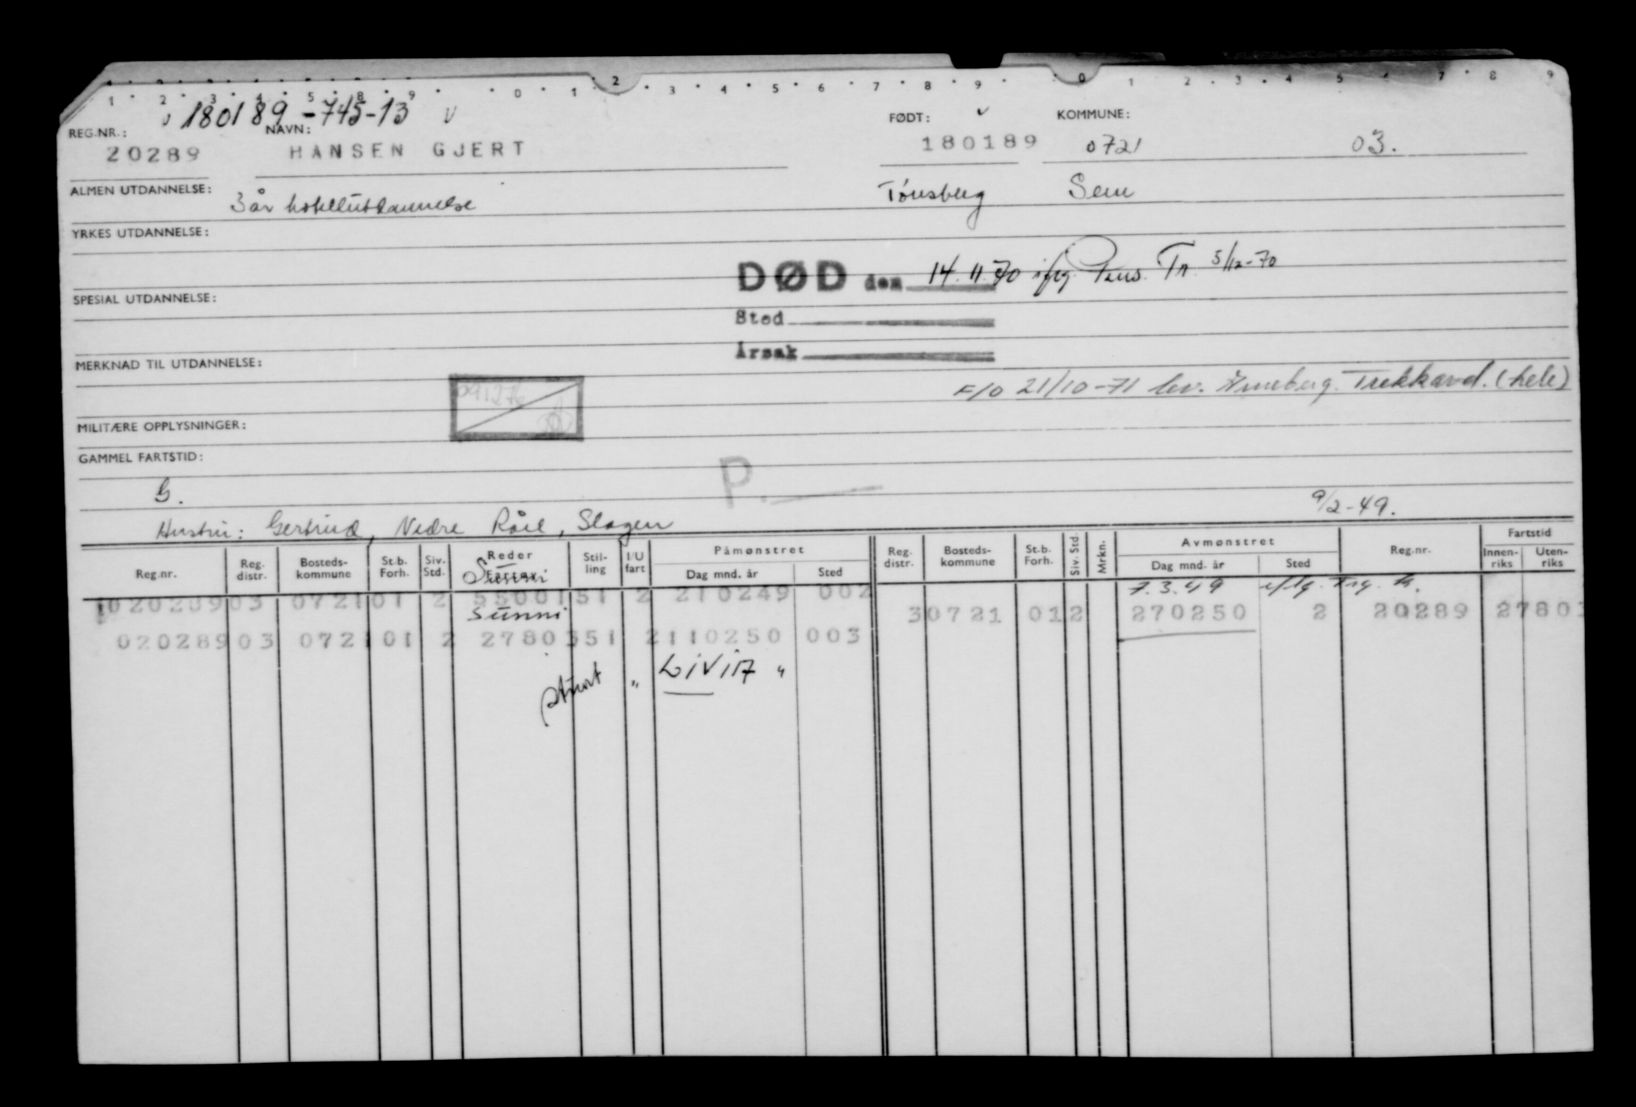 1 2 3 4 5 8 9 0 1 2 3 4 5 6 7 8 9 0 1 2 3 4 5 7 8 9
180189-745-13 v
REG.NR.: NAVN: FØDT: KOMMUNE:
20289 HANSEN GJERT 180189 0721 03.
ALMEN UTDANNELSE: 3 år hotellutdannelse Tønsberg Sem
YRKES UTDANNELSE:
DØD den 14.11.70 ifg. Tr. 5/12-70
SPESIAL UTDANNELSE:
Sted
Årsak
MERKNAD TIL UTDANNELSE:
F/O 21/10-71 lev. Trekkavd. (hele)
MILITÆRE OPPLYSNINGER:
GAMMEL FARTSTID:
P.
G. 9/2-49.
Hustru: Gertrud, Nedre Råel, Slagen
Reg.nr. Reg. distr. Bosteds- kommune St.b. Forh. Siv. Std. Reder Stil- ling I/U fart Påmønstret Dag mnd. år Sted Reg. distr. Bosteds- kommune St.b. Forh. Siv. Std. Mrkn. Avmønstret Dag mnd. år Sted Reg.nr. Fartstid Innen- riks Uten- riks
7.3.49
020289 03 0721 01 2 55001 51 2 210249 002
Sunni 30721 01 2 270250 2 20289 27803
020289 03 0721 01 2 27803 51 2 110250 003
stuert " LIVIA "